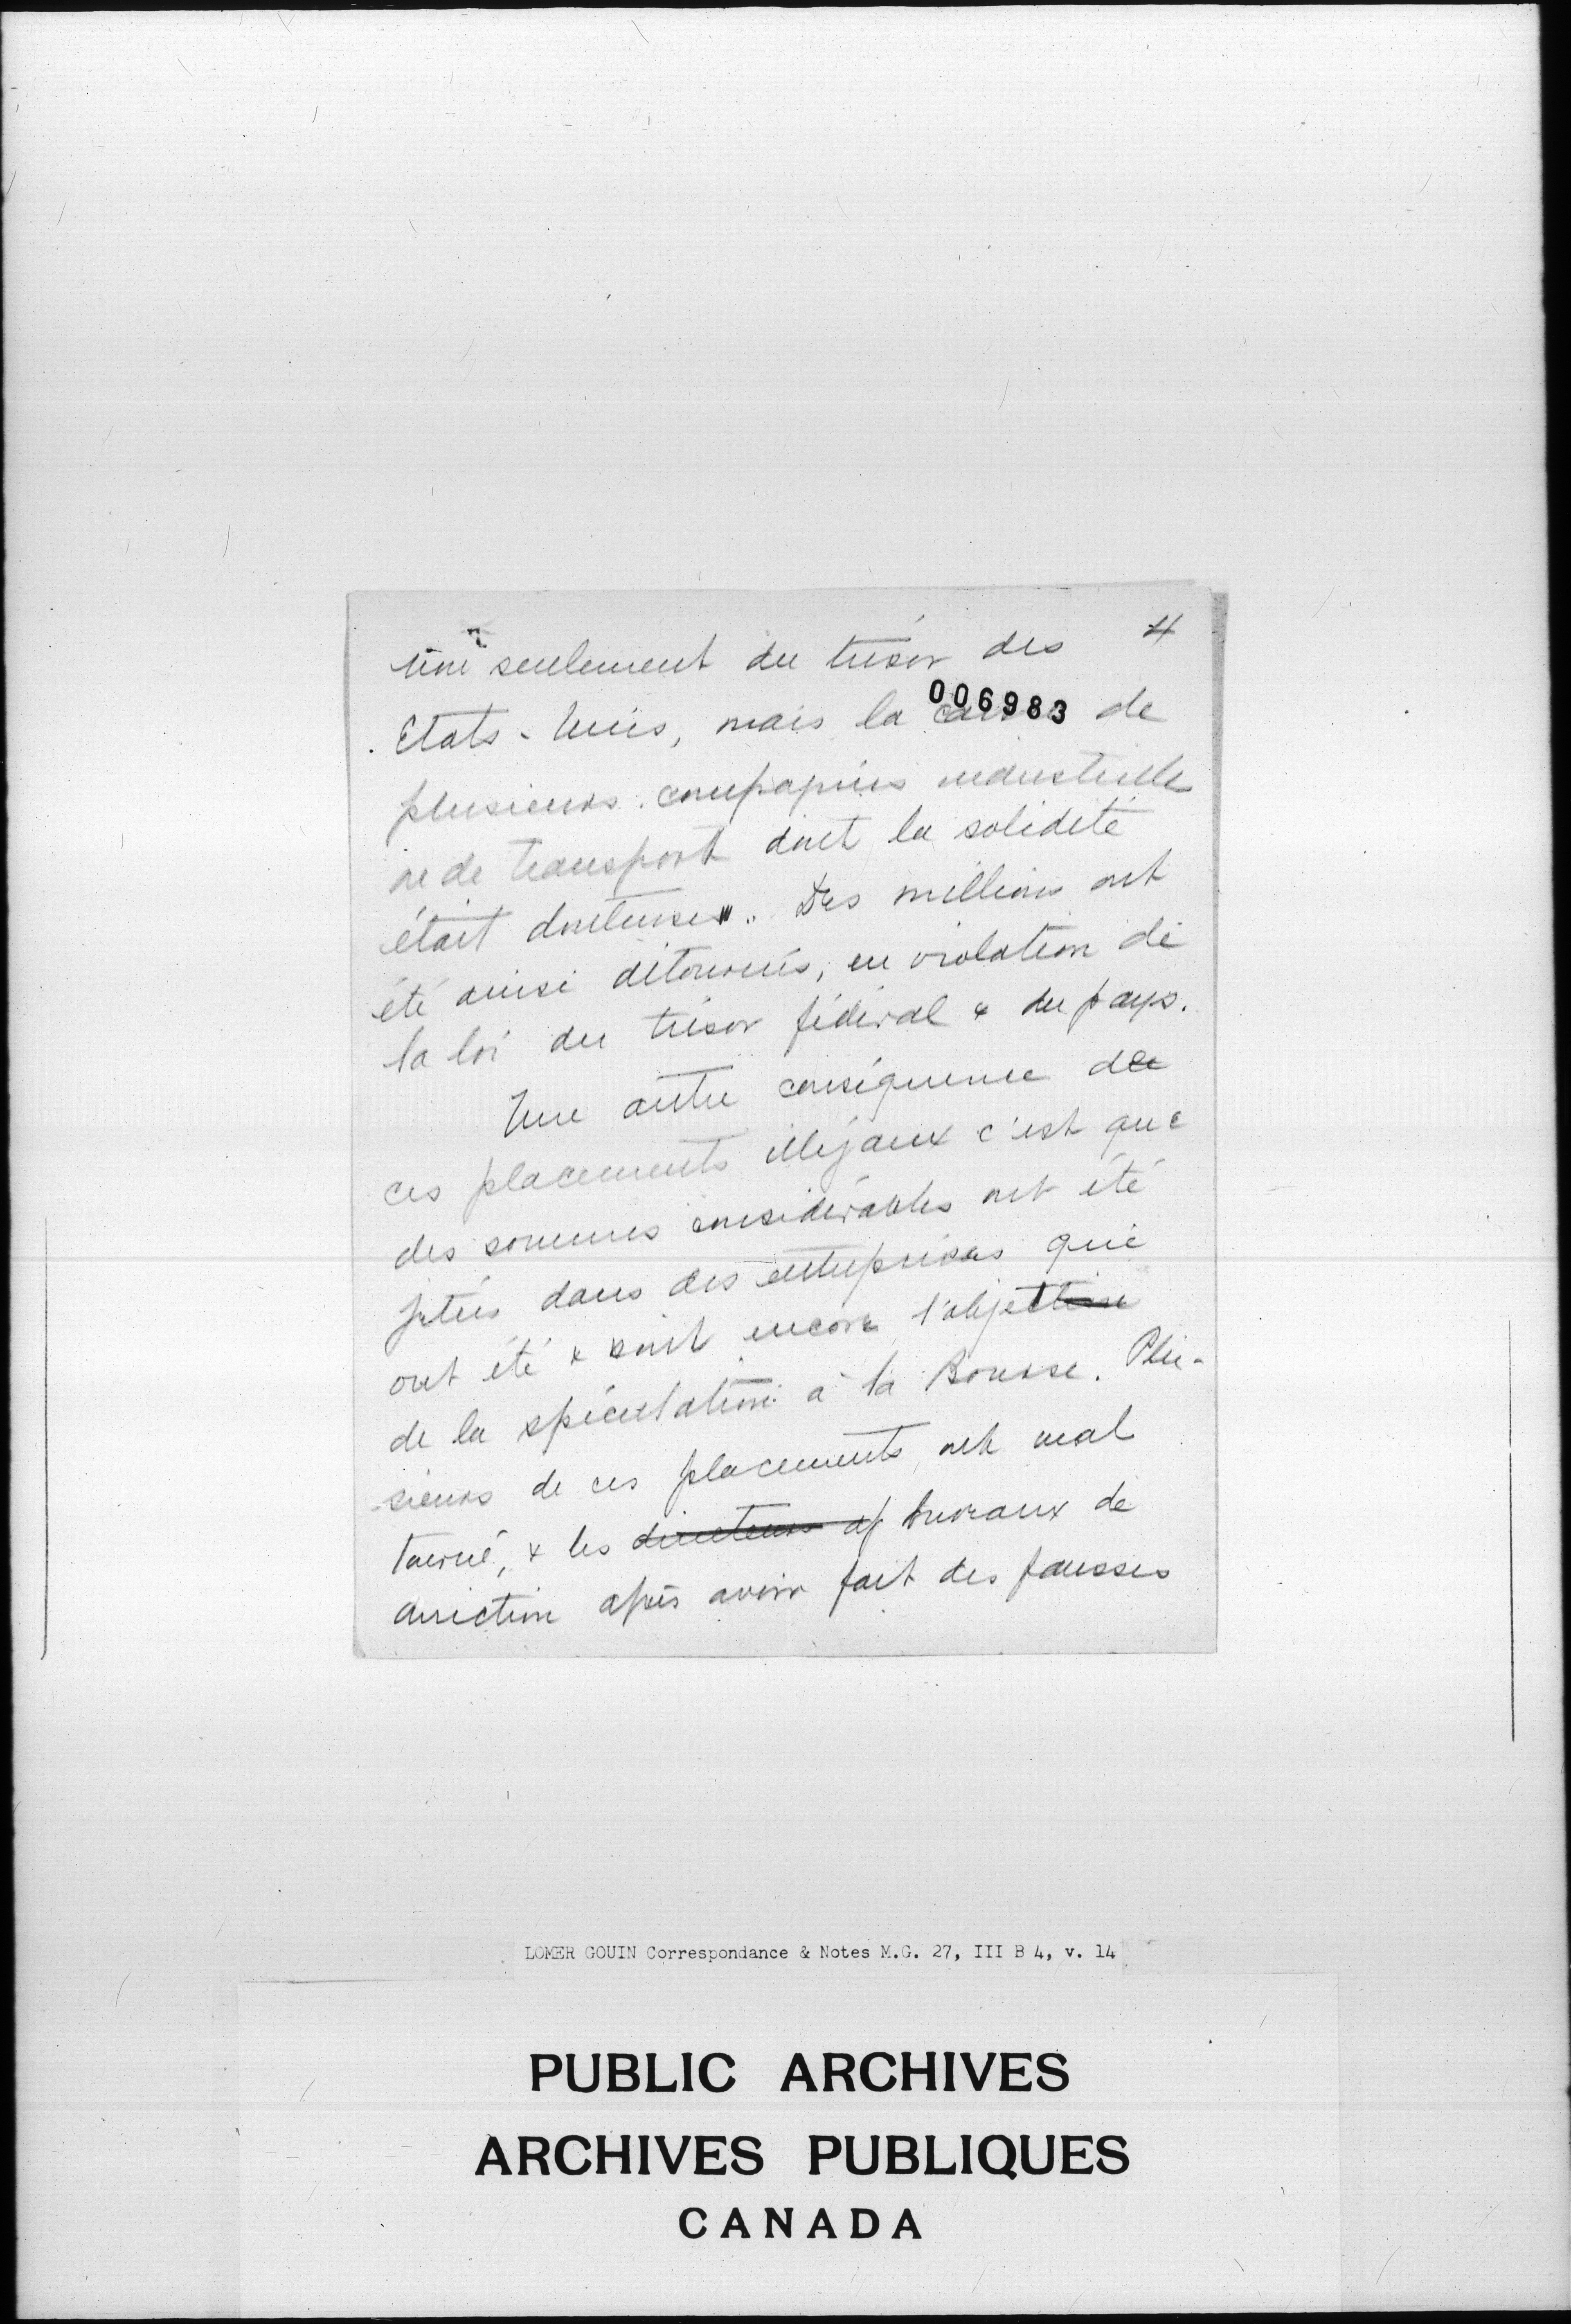 4
non seulement du trésor des
006983
Etats-Unis, mais la caisse de
plusieurs compagnies industrielle
ou de transport dont la solidité
était douteuse. Des millions ont
été ainsi détournés, en violation de
la loi du trésor fédéral & du pays.
Une autre conséquence de
ces placements illégaux c'est que
des sommes considérables ont été
jetées dans des entreprises qui
ont été & sont encore l'objet
de la spéculation à la Bourse. Plu-
sieurs de ces placements ont mal
tourné, & les directeurs bureaux de
direction après avoir fait des fausses
LOMER GOUIN Correspondance & Notes M.G. 27, III B 4, v. 14
PUBLIC ARCHIVES
ARCHIVES PUBLIQUES
CANADA